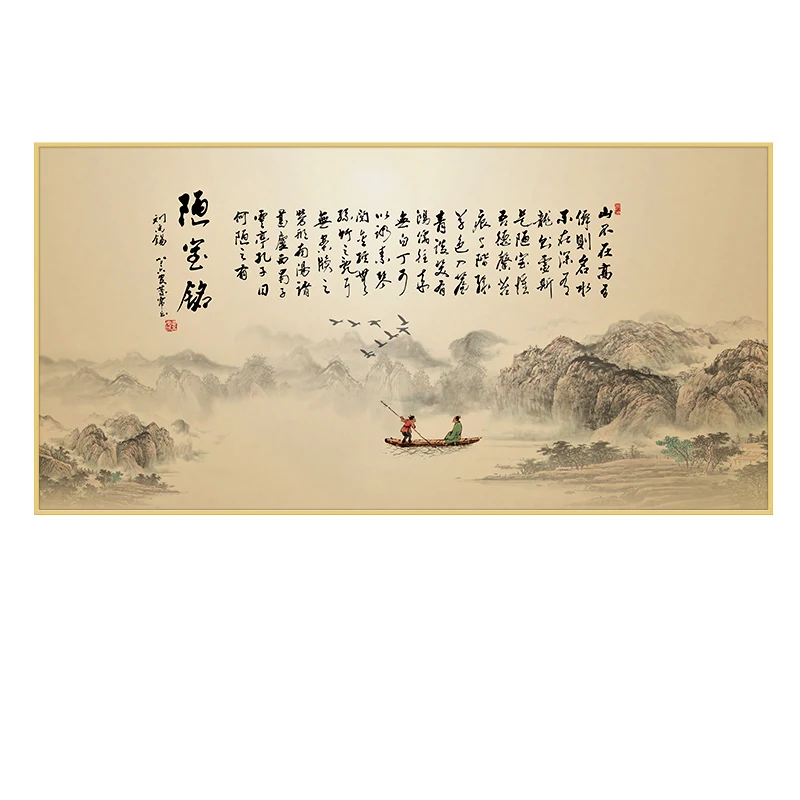 山不在高有
僊則名水
不在深有
龍則靈斯
是陋室惟
吾德馨苔
痕上階緑
草色入簾
青談笑有
鴻儒往來
無白丁可
以調素琴
閲金經無
絲竹之亂耳
無案牘之
勞形南陽諸
葛廬西蜀子
雲亭孔子曰
何陋之有
陋室銘
劉禹錫